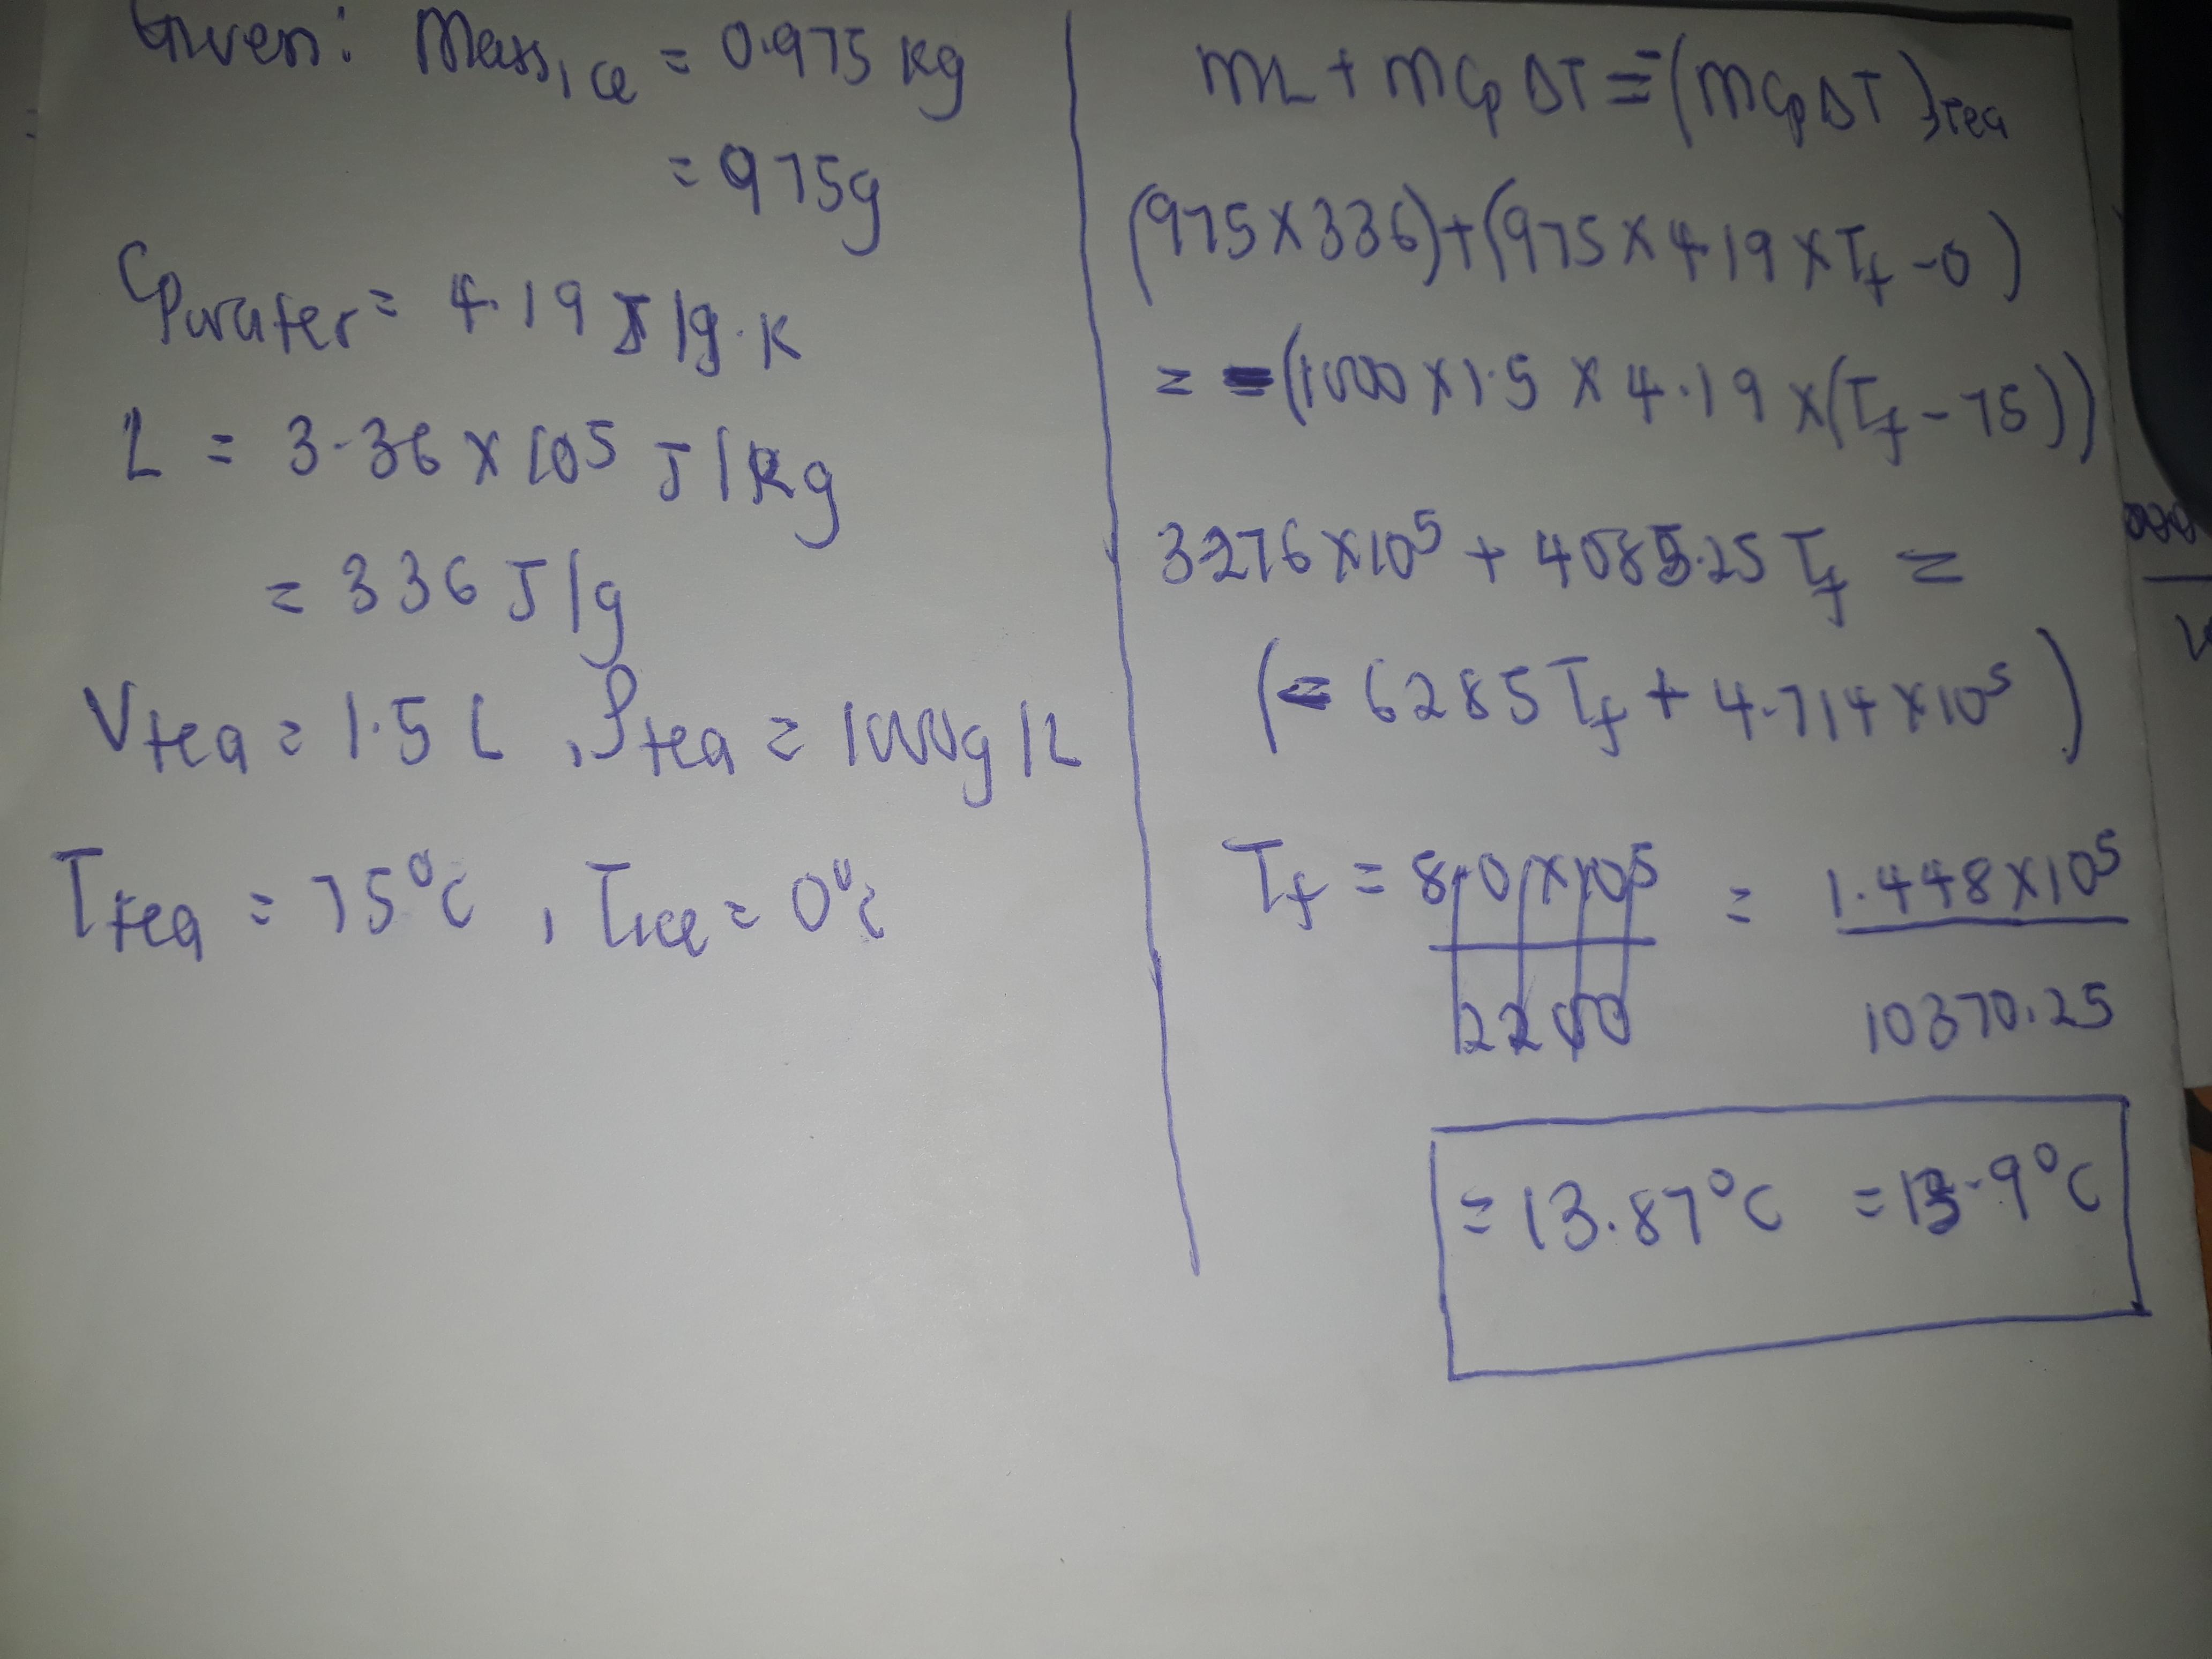 Given: Mass,ice = 0.975 kg
= 975g
Cpwater = 4.19 J/g.K
L = 3.36 x 105 J/kg
= 336 J/g
Vtea = 1.5 L , ρtea = 1000g/L
Ttea = 75°C , Tice = 0°C
mL + mCpΔT = -(mCpΔT),Tea
(975 x 336) + (975 x 4.19 x Tf - 0)
= -(1000 x 1.5 x 4.19 x (Tf - 75))
3.276 x 10⁵ + 4085.25 Tf =
(- 6285 Tf + 4.714 x 10⁵)
Tf = = 1.448 x 10⁵
10370.25
= 13.87°C = 13.9°C